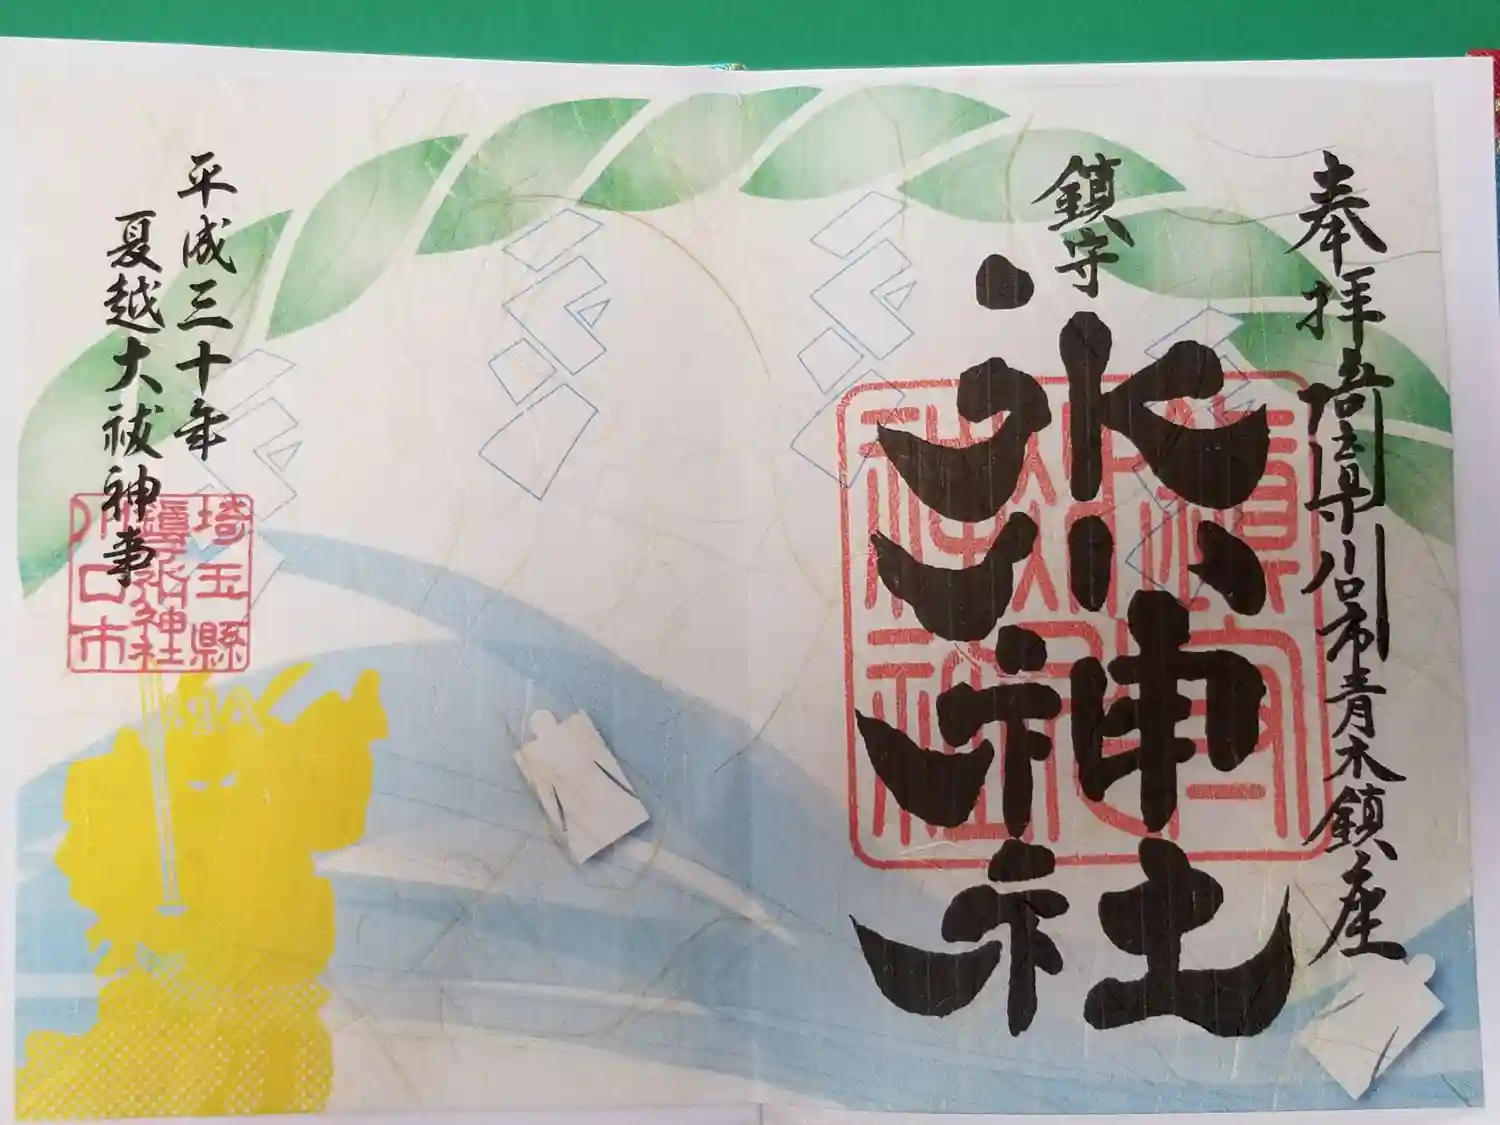 奉拝 埼玉県川口市青木鎮座
鎮守
氷川神社
鎮守氷川神社
平成三十年
夏越大祓神事
埼玉縣
鎮守氷川神社
川口市